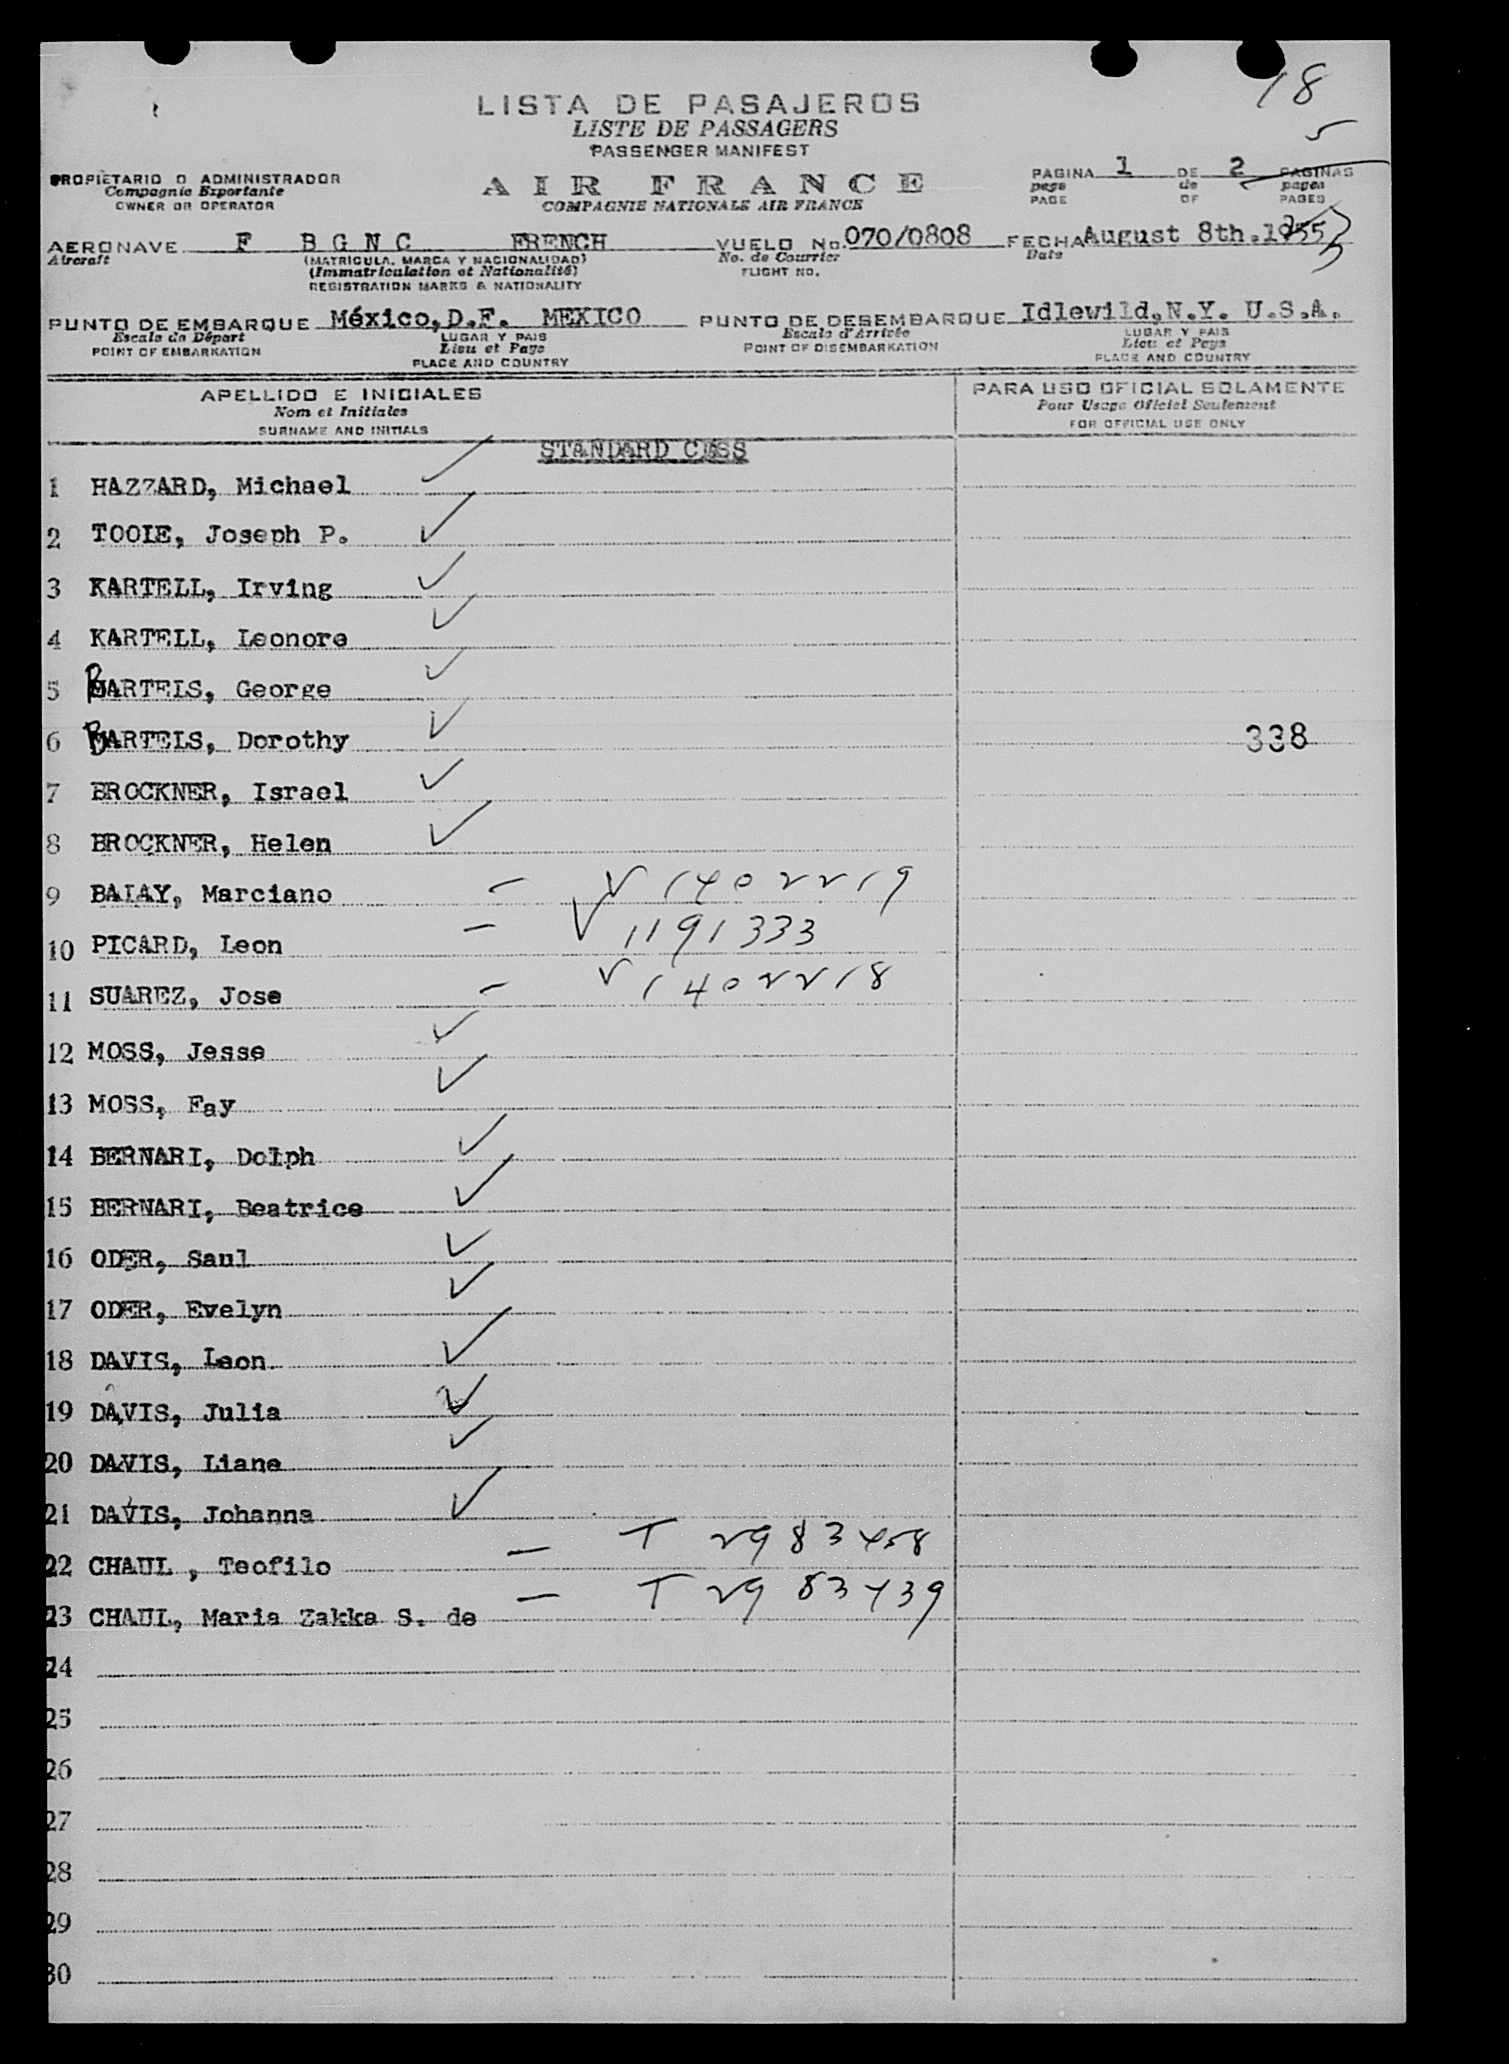 18
5
LISTA DE PASAJEROS
LISTE DE PASSAGERS
PASSENGER MANIFEST
PROPIETARIO O ADMINISTRADOR
Compagnie Exportante
OWNER OR OPERATOR
AIR FRANCE
COMPAGNIE NATIONALE AIR FRANCE
PAGINA 1 DE 2 PAGINAS
page de pages
PAGE OF PAGES
AERONAVE F BGNC FRENCH VUELO No. 070/0808 FECHA August 8th.1955
Aircraft (MATRICULA, MARCA Y NACIONALIDAD) No. de Courrier Date
(Immatriculation et Nationalité) FLIGHT NO.
REGISTRATION MARKS & NATIONALITY
PUNTO DE EMBARQUE México,D.F. MEXICO PUNTO DE DESEMBARQUE Idlewild,N.Y. U.S.A.
Escale de Départ LUGAR Y PAIS Escale d'Arrivée LUGAR Y PAIS
POINT OF EMBARKATION Lieu et Pays POINT OF DISEMBARKATION Lieu et Pays
PLACE AND COUNTRY PLACE AND COUNTRY
APELLIDO E INICIALES PARA USO OFICIAL SOLAMENTE
Nom et Initiales Pour Usage Officiel Seulement
SURNAME AND INITIALS FOR OFFICIAL USE ONLY
STANDARD CLSS
1 HAZZARD, Michael
2 TOOLE, Joseph P.
3 KARTELL, Irving
4 KARTELL, Leonore
5 BARTELS, George
6 BARTELS, Dorothy 338
7 BROCKNER, Israel
8 BROCKNER, Helen
9 BALAY, Marciano – V 1402219
10 PICARD, Leon – V 1191333
11 SUAREZ, Jose – V 1402218
12 MOSS, Jesse
13 MOSS, Fay
14 BERNARI, Dolph
15 BERNARI, Beatrice
16 ODER, Saul
17 ODER, Evelyn
18 DAVIS, Leon
19 DAVIS, Julia
20 DAVIS, Liane
21 DAVIS, Johanna
22 CHAUL , Teofilo – T 2983458
23 CHAUL, Maria Zakka S. de – T 2983439
24
25
26
27
28
29
30